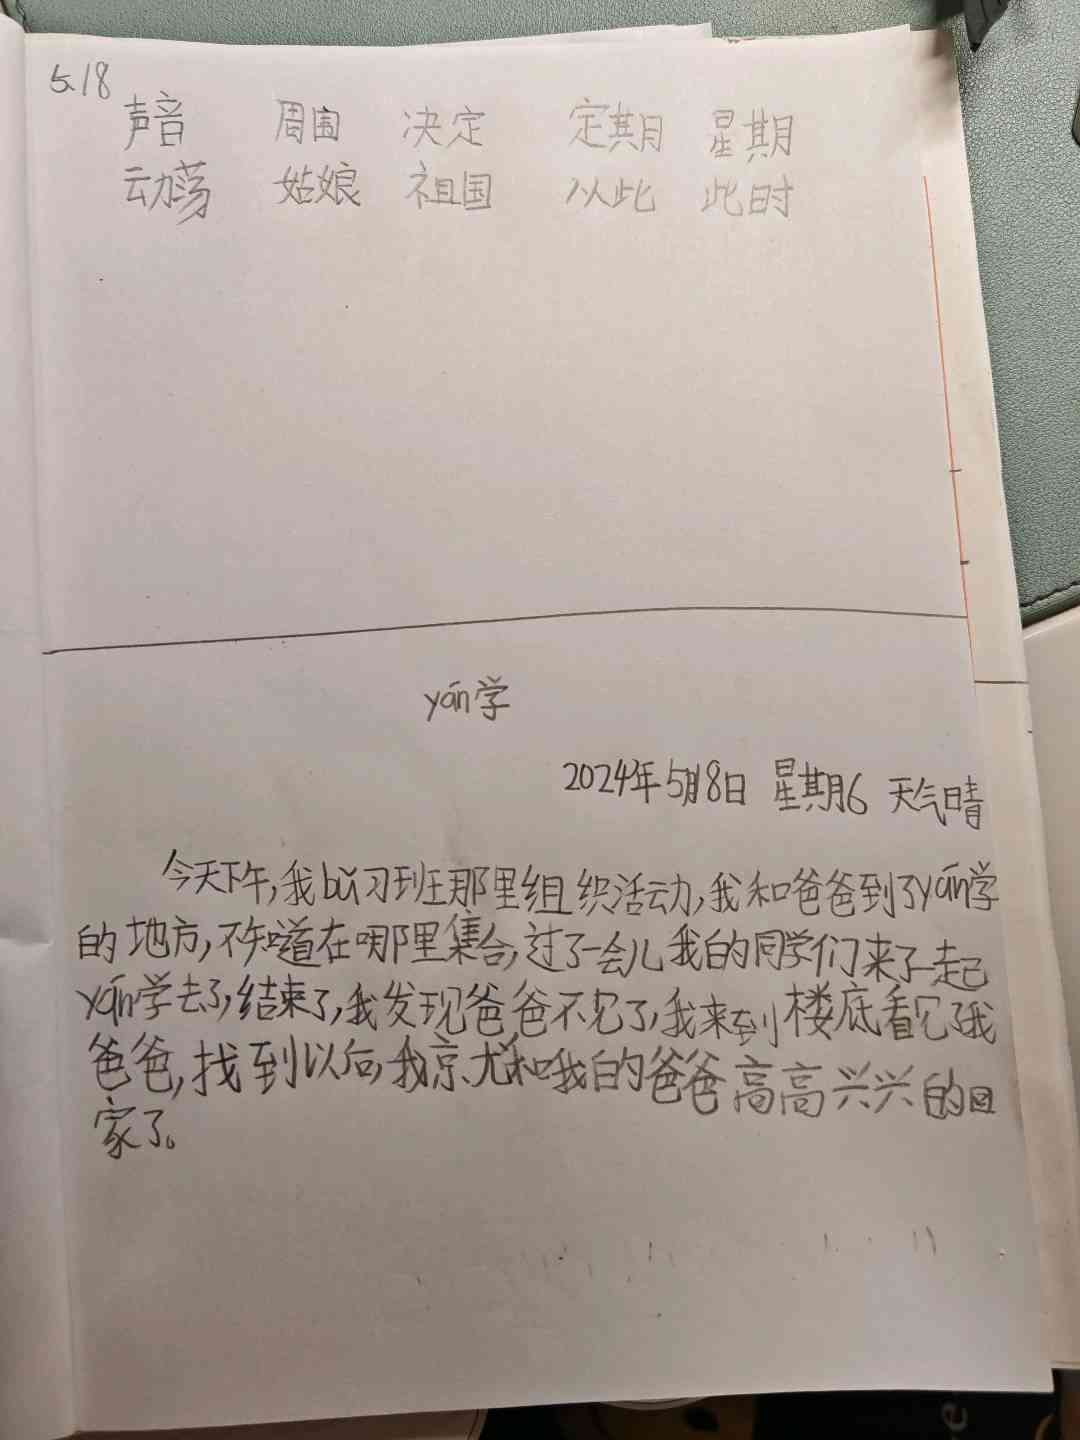 5.18
声音 周围 决定 定期 星期
动荡 姑娘 祖国 以此 此时
yán学
2024年5月8日 星期6 天气晴
今天下午,我bǔ习班那里组织活动,我和爸爸到了yán学
的地方,不知道在哪里集合,过了一会儿我的同学们来了一起
yán学去了,结束了,我发现爸爸不见了,我来到楼底看见了我
爸爸,找到以后,我就和我的爸爸高高兴兴的回
家了。